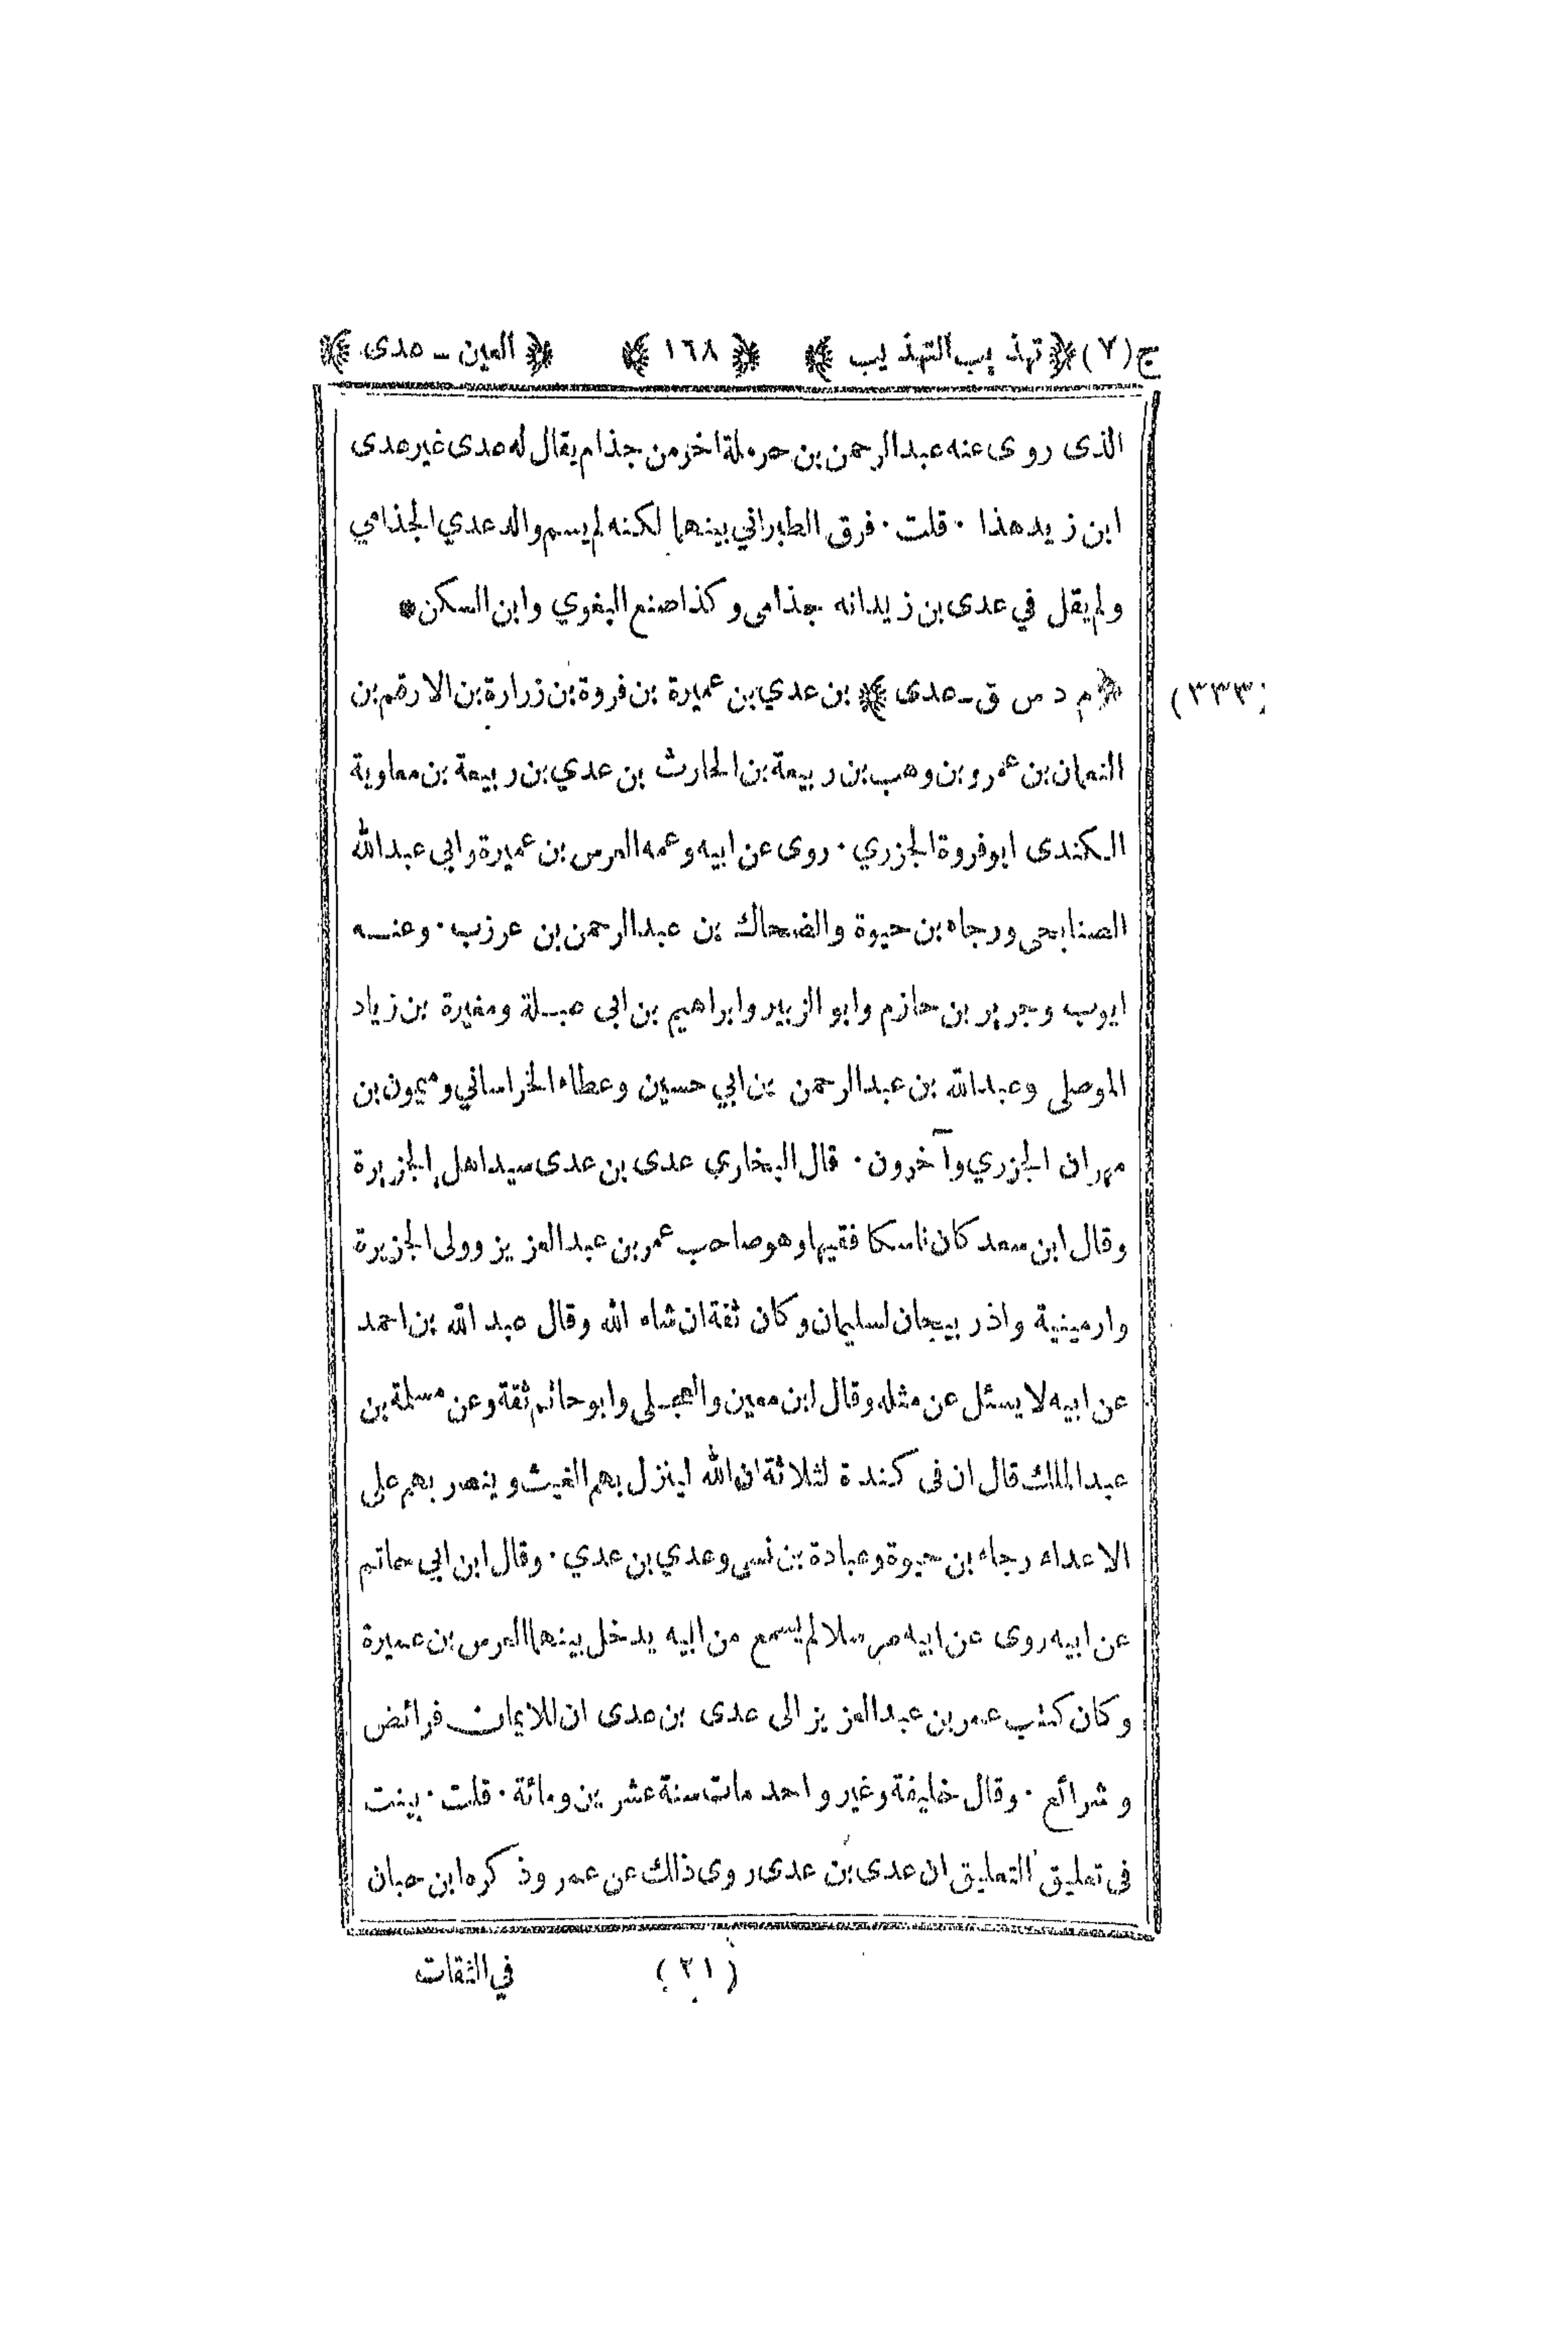 ج(٧) ﴿ تهذيب التهذيب ﴾ ﴿ ١٦٨ ﴾ ﴿ العين - عدى ﴾
الذى روى عنه عبد الرحمن بن حرملة اخر من جذام يقال له عدى غير عدى
ابن زيد هذا ٠ قلت ٠ فرق الطبراني بينهما لكنه لم يسم والد عدي الجذامي
ولم يقل في عدى بن زيد انه جذامى وكذا صنع البغوي وابن السكن *
﴿ م د س ق - عدى ﴾ بن عدي بن عميرة بن فروة بن زرارة بن الارقم بن
(٣٣٣)
النعمان بن عمرو بن وهب بن ربيعة بن الحارث بن عدي بن ربيعة بن معاوية
الكندى ابو فروة الجزري ٠ روى عن ابيه وعمه العرس بن عميرة وابي عبد الله
الصنابحى ورجاء بن حيوة والضحاك بن عبد الرحمن بن عرزب ٠ وعنه
ايوب وجرير بن حازم وابو الزبير وابراهيم بن ابى عبلة ومغيرة بن زياد
الموصلى وعبد الله بن عبد الرحمن بن ابي حسين وعطاء الخراساني وميمون بن
مهران الجزري وآخرون ٠ قال البخاري عدى بن عدى سيد اهل الجزيرة
وقال ابن سعد كان ناسكا فقيها وهو صاحب عمر بن عبد العزيز وولى الجزيرة
وارمينية واذربيجان لسليمان وكان ثقة ان شاء الله وقال عبد الله بن احمد
عن ابيه لا يسئل عن مثله وقال ابن معين والعجلى وابو حاتم ثقة وعن مسلمة بن
عبد الملك قال ان فى كندة لثلاثة ان الله لينزل بهم الغيث وينصر بهم على
الاعداء رجاء بن حيوة وعبادة بن نسى وعدي بن عدي ٠ وقال ابن ابي حاتم
عن ابيه روى عن ابيه مرسلا لم يسمع من ابيه يدخل بينهما العرس بن عميرة
وكان كتب عمر بن عبد العزيز الى عدى بن عدى ان للايمان فرائض
وشرائع ٠ وقال خليفة وغير واحد مات سنة عشرين ومائة ٠ قلت ٠ بينت
فى تعليق التعليق ان عدى بن عدى روى ذلك عن عمر وذكره ابن حبان
(٢١) في الثقات